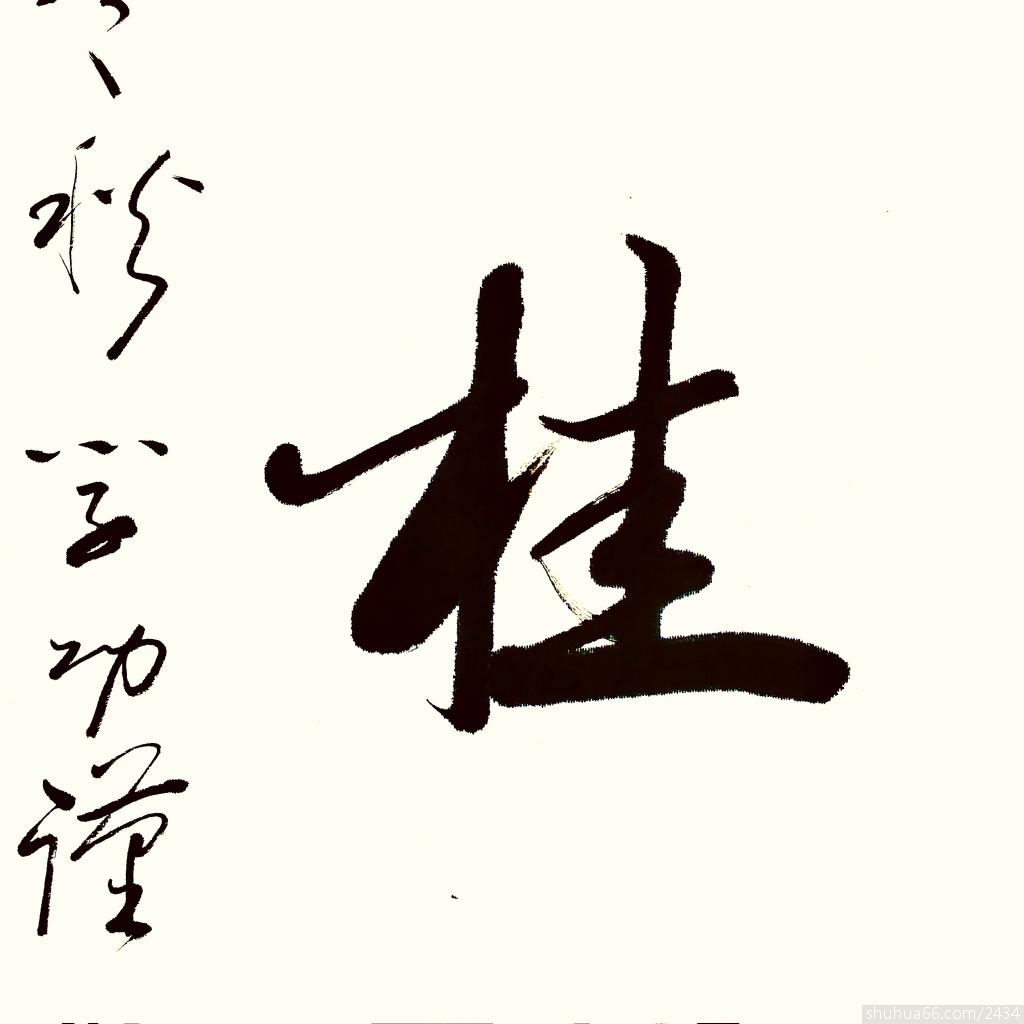 桂
秋学功谨
shuhua66.com/2434